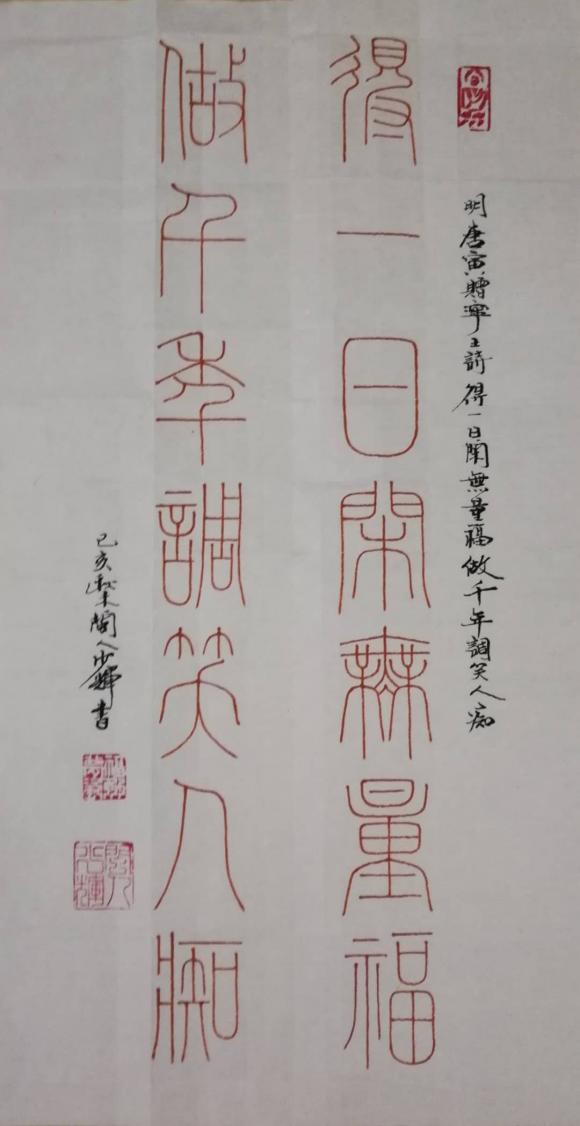 明唐寅贈寧王詩得一日閑無量福做千年調笑人痴
得一日閑無量福
做千年調笑人痴
己亥秋末閩人少輝書